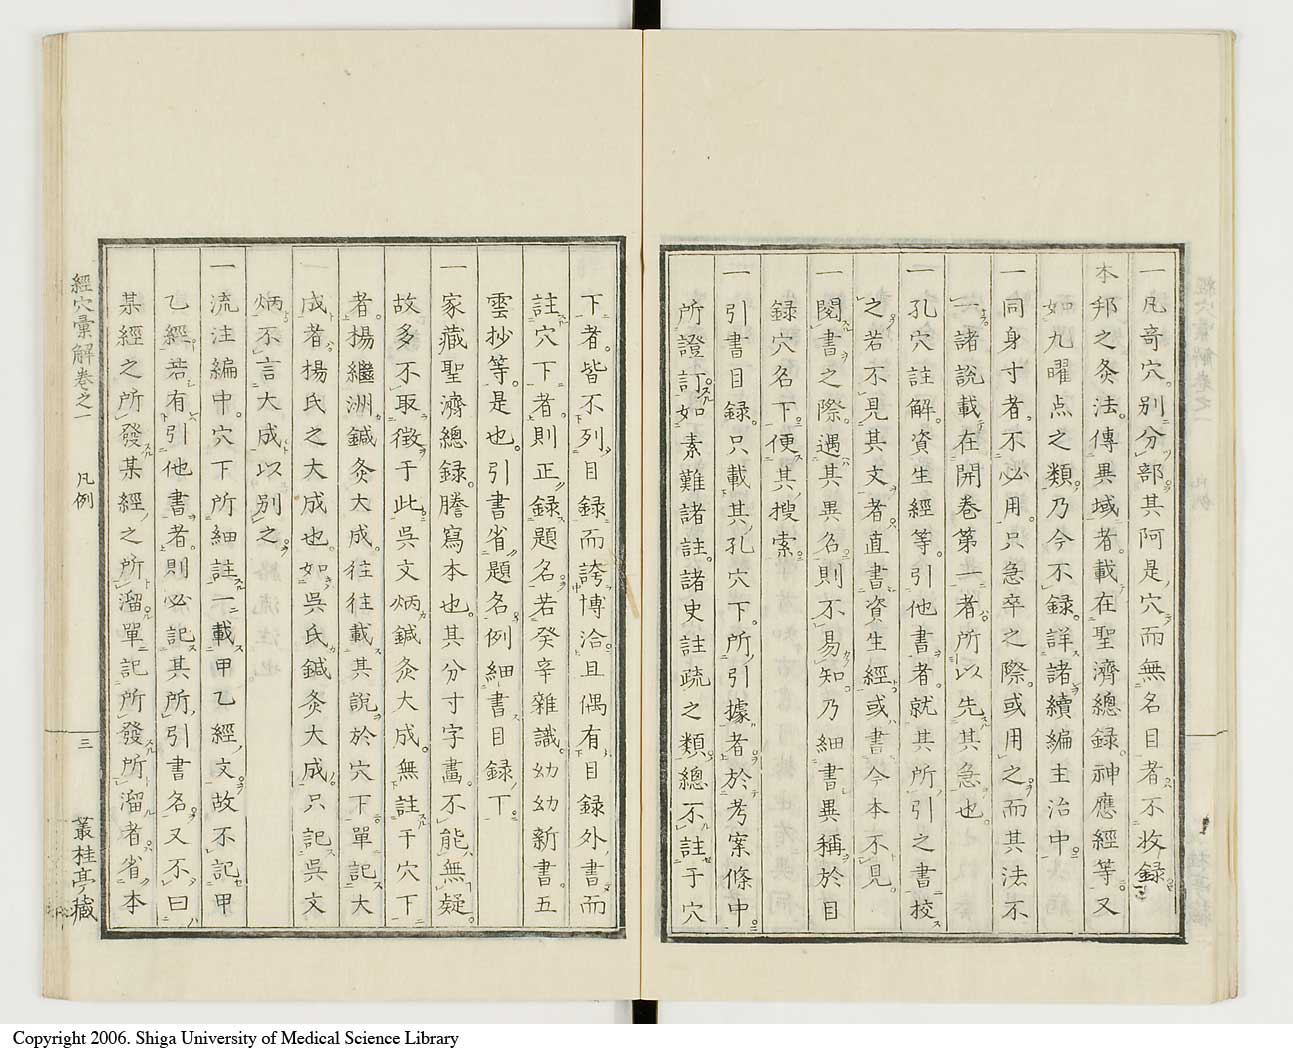 一凡奇穴別分部其阿是穴而無名目者不收錄
本邦之灸法傳異域者載在聖濟總錄神應經等又
如九曜点之類乃今不錄詳諸續編主治中
一同身寸者不必用只急卒之際或用之而其法不
一諸說載在開卷第一者所以先其急也
一孔穴註解資生經等引他書者就其所引之書校
之若不見其文者直書資生經或書今本不見
一閱書之際遇其異名則不易知乃細書異稱於目
錄穴名下便其搜索
一引書目錄只載其孔穴下所引據者於考案條中
所證訂如素難諸註諸史註疏之類總不註于穴
下者皆不列目錄而誇博洽且偶有目錄外書而
註穴下者則正錄題名若癸辛雜識幼幼新書五
雲抄等是也引書省題名例細書目錄下
一家藏聖濟總錄謄寫本也其分寸字畫不能無疑
故多不取徵于此吳文炳鍼灸大成無註于穴下
者楊繼洲鍼灸大成往往載其說於穴下單記大
成者楊氏之大成也如吳氏鍼灸大成只記吳文
炳不言大成以別之
一流注編中穴下所細註一載甲乙經文故不記甲
乙經若有引他書者則必記其所引書名又不曰
某經之所發某經之所溜單記所發所溜者省本
經穴彙解卷之一 凡例 三 叢桂亭藏
Copyright 2006. Shiga University of Medical Science Library